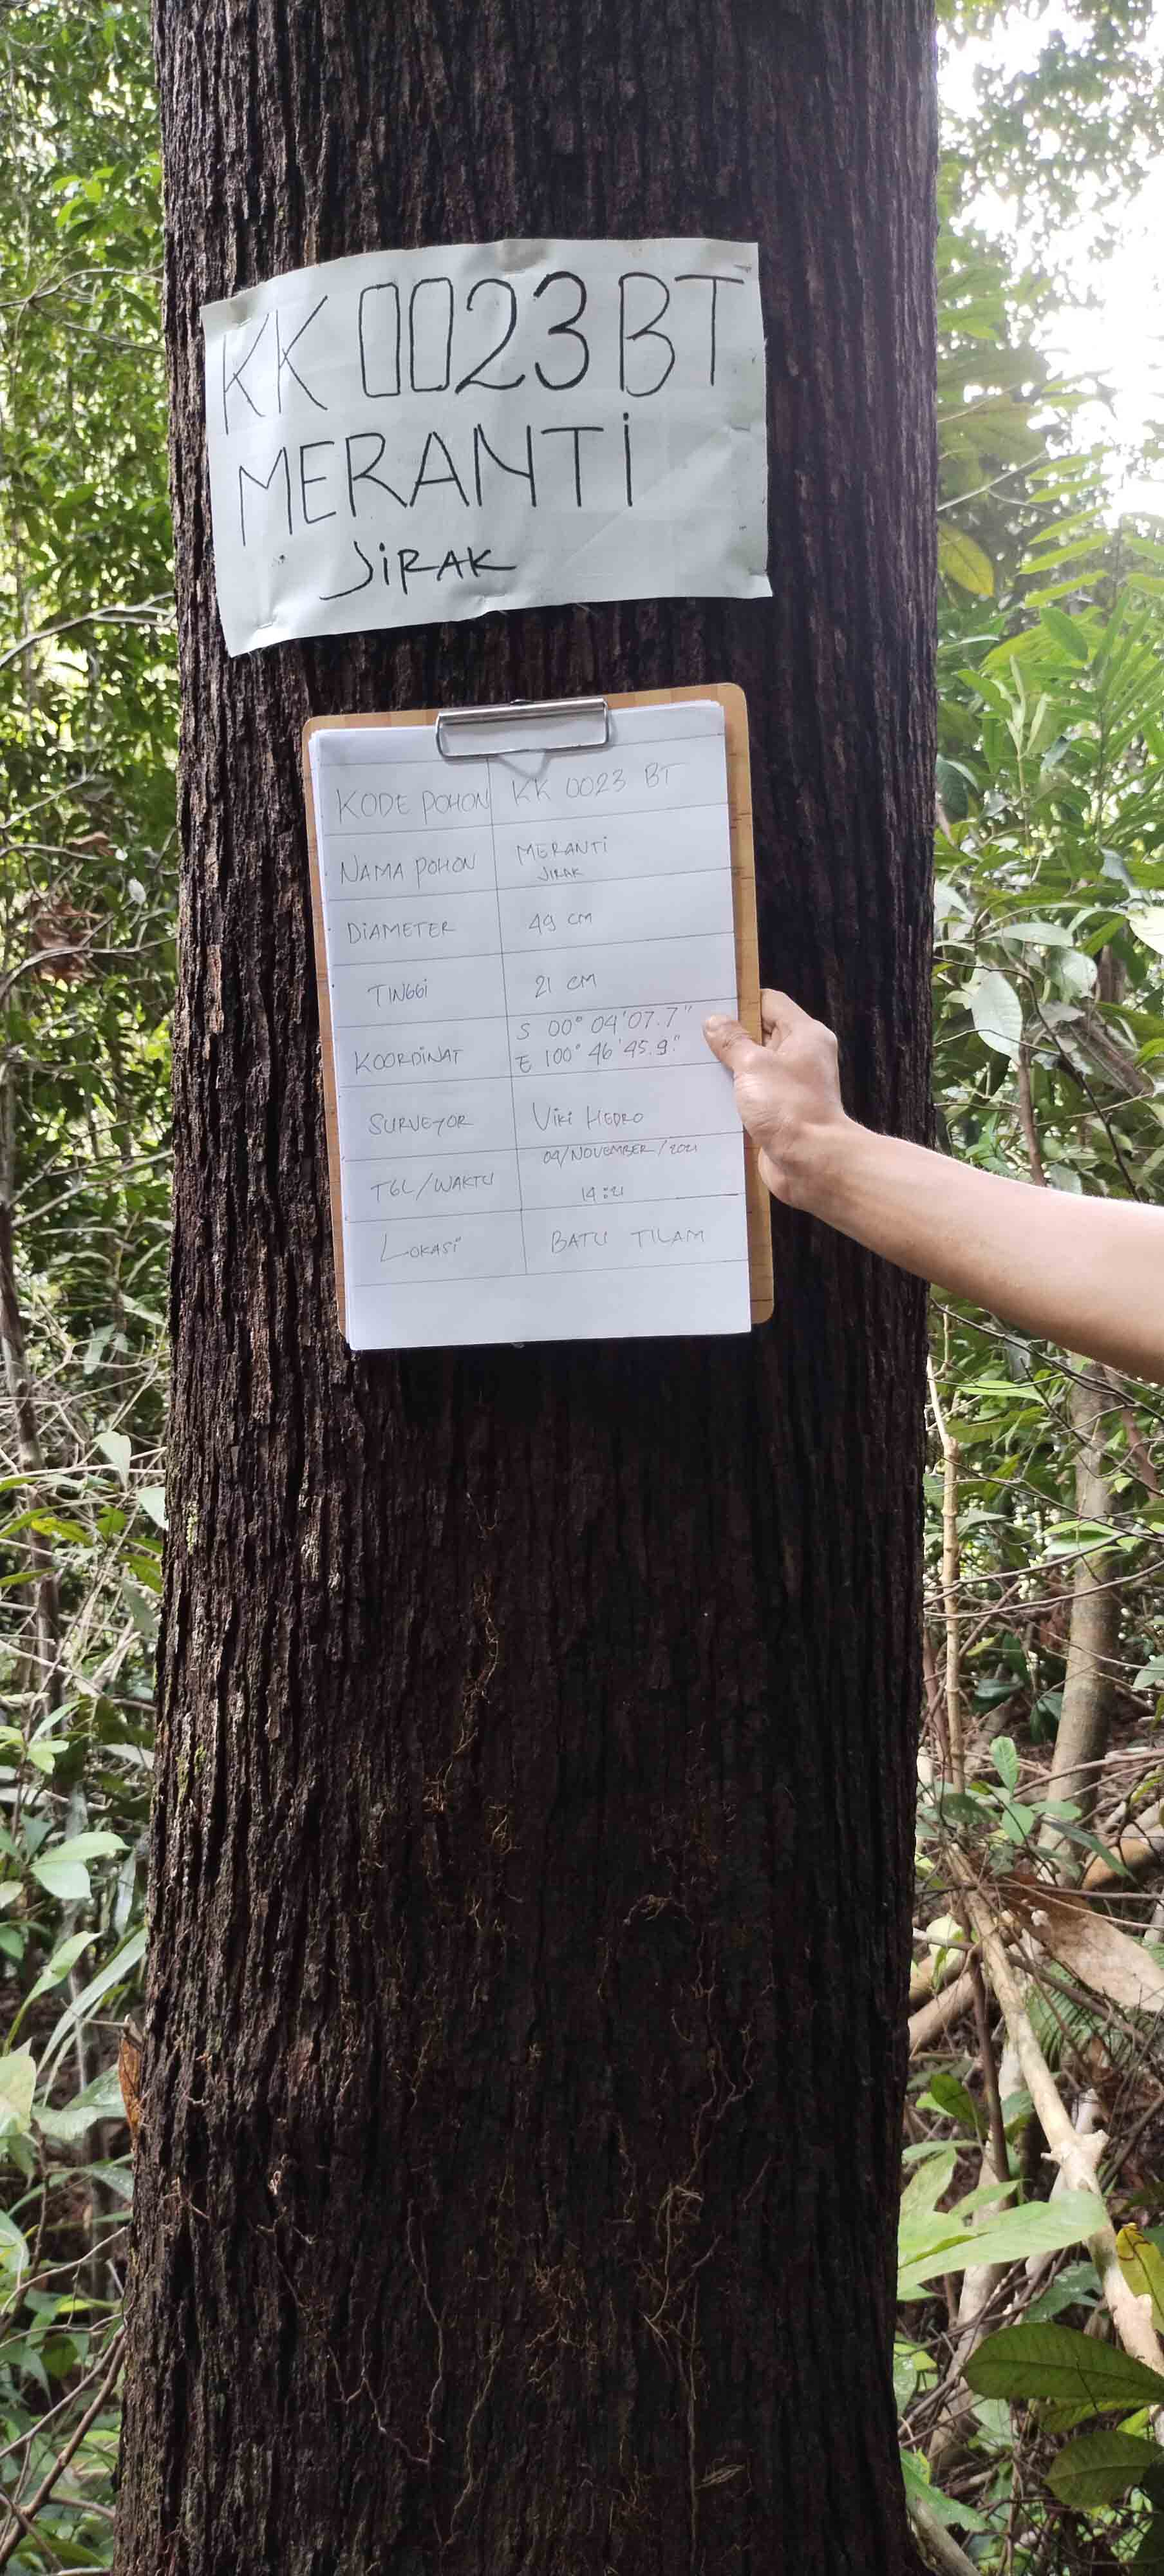 KK 0023 BT
MERANTI
JIRAK
KODE POHON KK 0023 BT
NAMA POHON MERANTI
JIRAK
DIAMETER 49 CM
TINGGI 21 CM
KOORDINAT S 00° 04' 07.7"
E 100° 46' 45.9"
SURVEYOR VIKI HEDRO
TGL/WAKTU 09/NOVEMBER/2021
14:21
LOKASI BATU TILAM